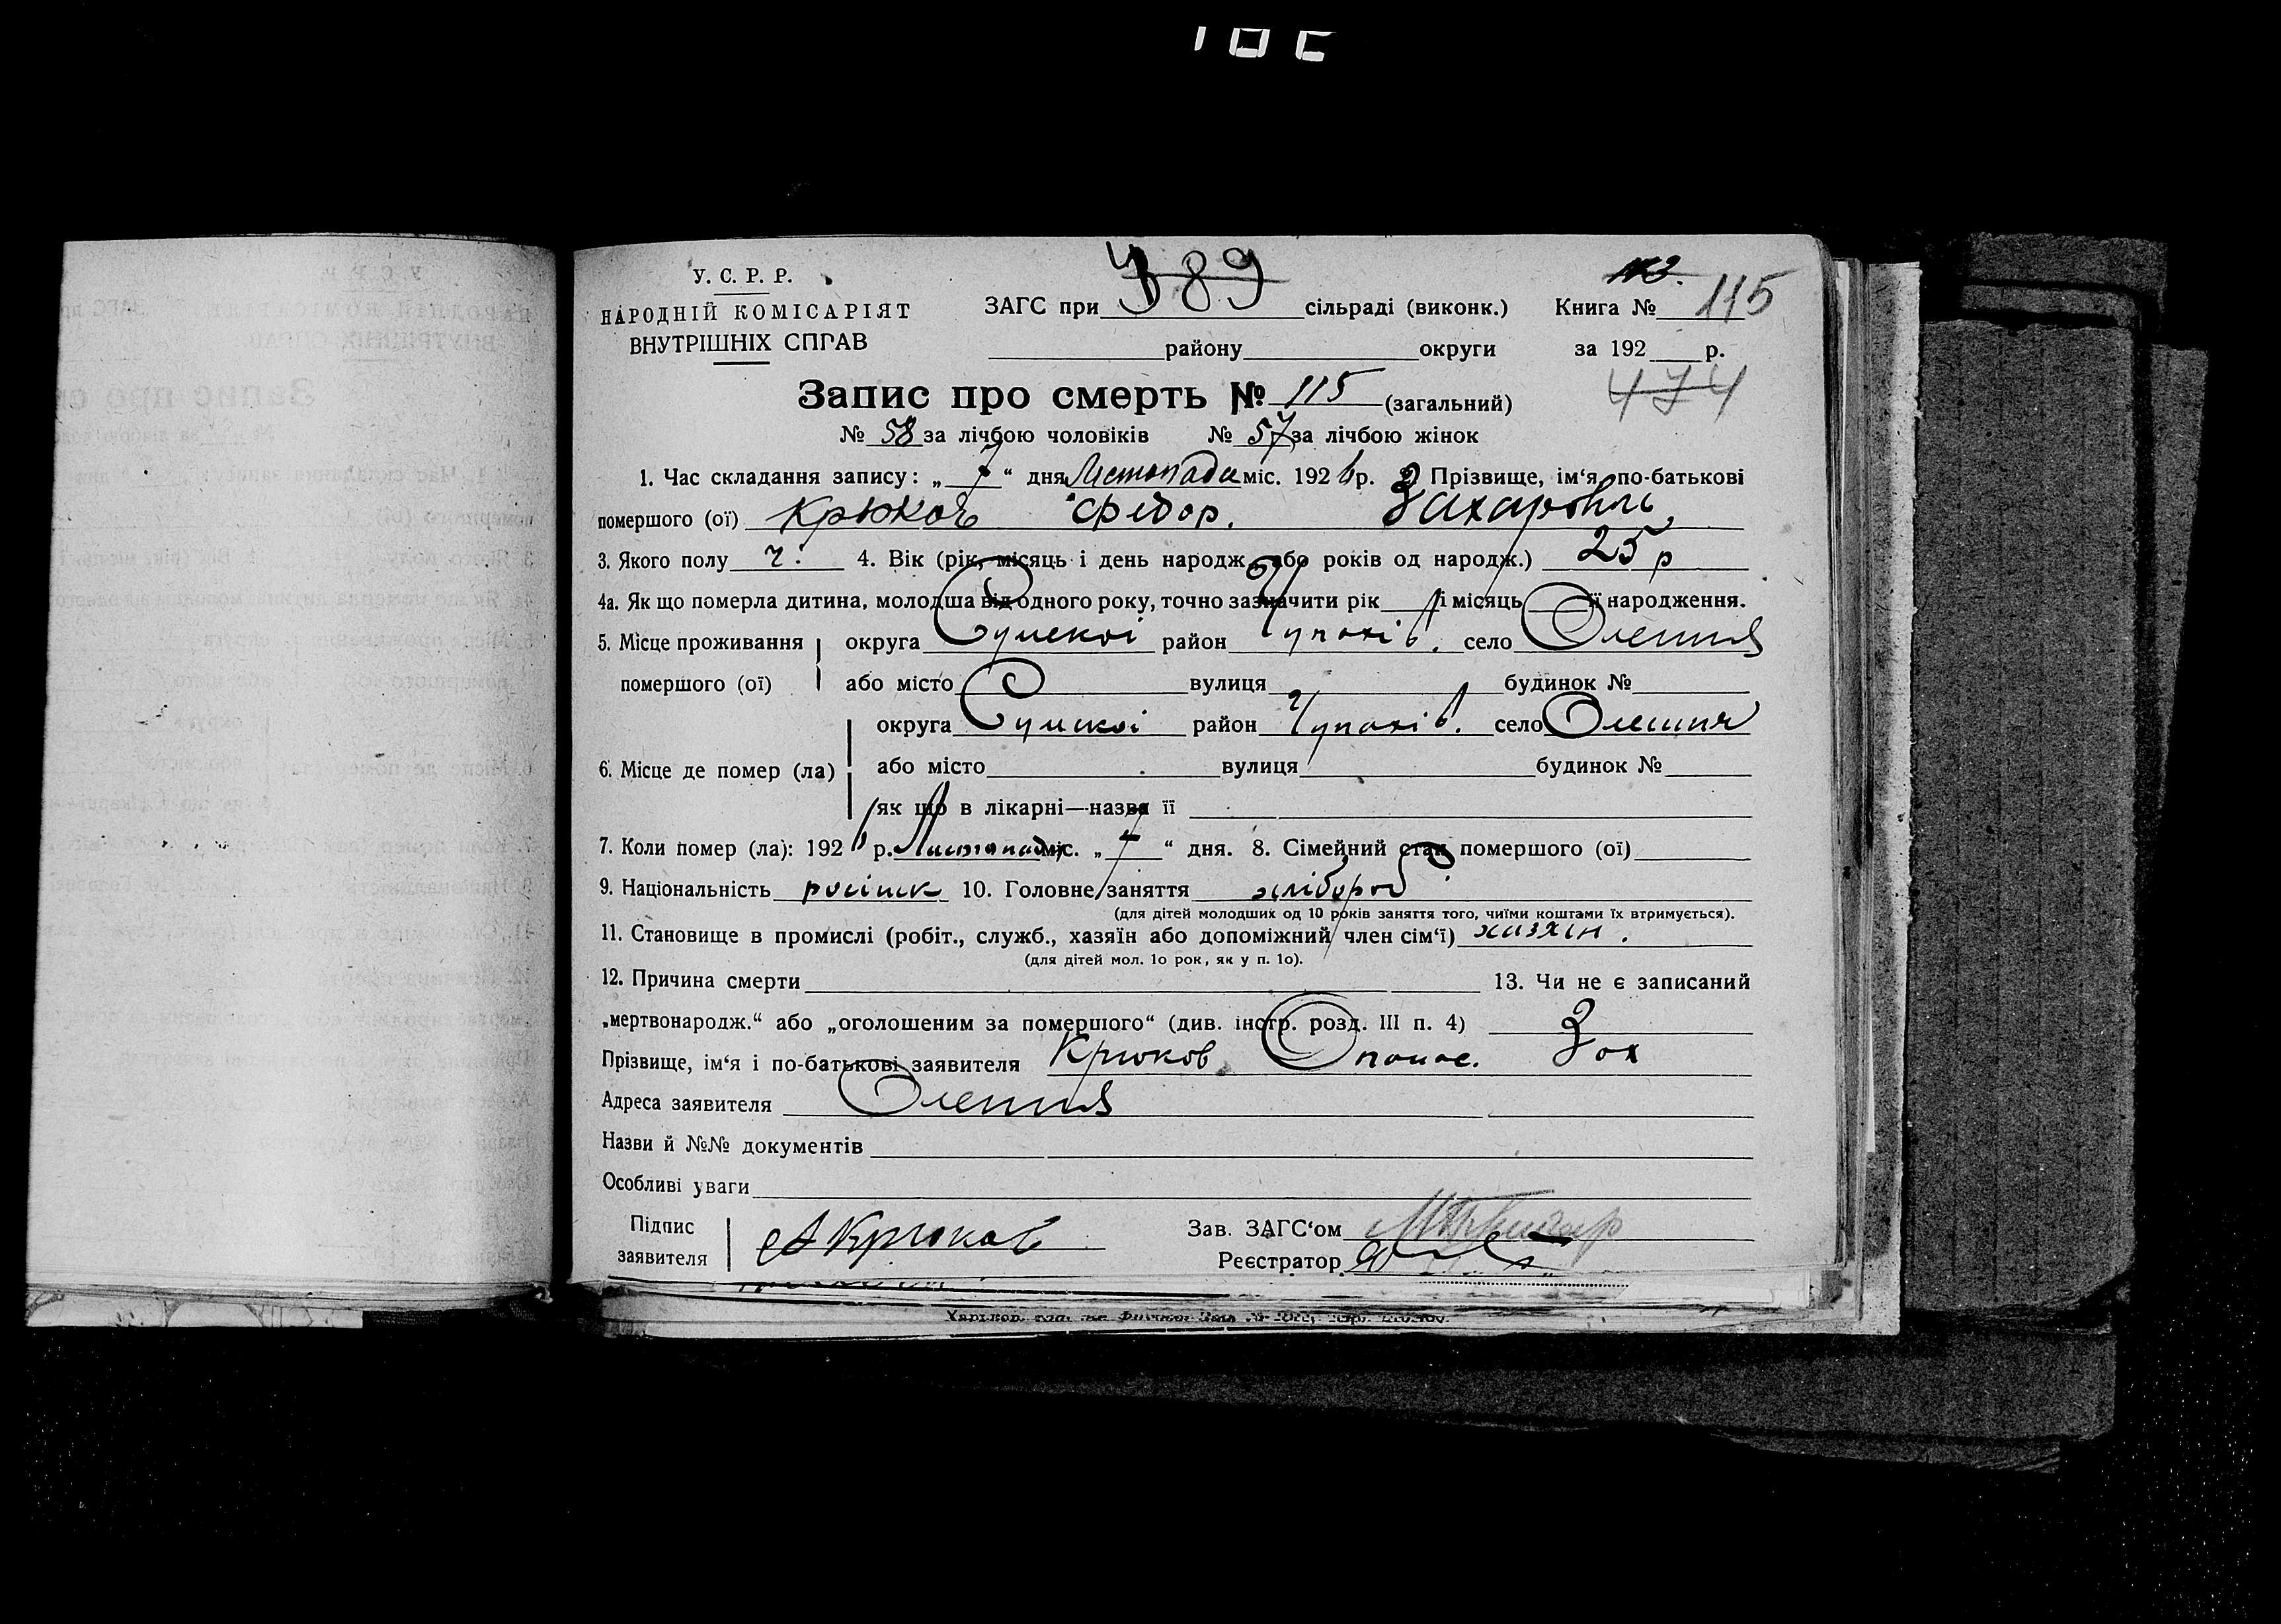 У. С. Р. Р.
НАРОДНІЙ КОМІСАРІЯТ
ВНУТРІШНІХ СПРАВ
ЗАГС при 389 сільраді (виконк.) Книга № 115
району округи за 192 р.
474
Запис про смерть № 115 (загальний)
№ 58 за лічбою чоловіків № 57 за лічбою жінок
1. Час складання запису: „ 7 “ дня Листопада міс. 1926 р. 2. Прізвище, ім‘я, по-батькові
помершого (ої) Крюков Федор. Захарович
3. Якого полу ч. 4. Вік (рік, місяць і день народж. або років од народж.) 25 р
4а. Як що померла дитина, молодша від одного року, точно зазначити рік і місяць її народження.
5. Місце проживання округа Сумскоі район Чупахів. село Олешня
помершого (ої) або місто вулиця будинок №
округа Сумскоі район Чупахів. село Олешня
6. Місце де помер (ла) або місто вулиця будинок №
як що в лікарні—назва її
7. Коли помер (ла): 1926 р. Листопада міс. „ 7 “ дня. 8. Сімейний стан помершого (ої)
9. Національність 10. Головне заняття хлібороб
(для дітей молодших од 10 років заняття того, чиїми коштами їх втримується).
11. Становище в промислі (робіт., служб., хазяїн або допоміжний член сім‘ї) хазяін.
(для дітей мол. 10 рок, як у п. 10).
12. Причина смерти 13. Чи не є записаний
„мертвонародж.“ або „оголошеним за помершого“ (див. інстр. розд. III п. 4)
Прізвище, ім‘я і по-батькові заявителя Крюков Опанас. Зах
Адреса заявителя Олешня
Назви й №№ документів
Особливі уваги
Підпис заявителя А Крюков
Зав. ЗАГС‘ом
Реєстратор